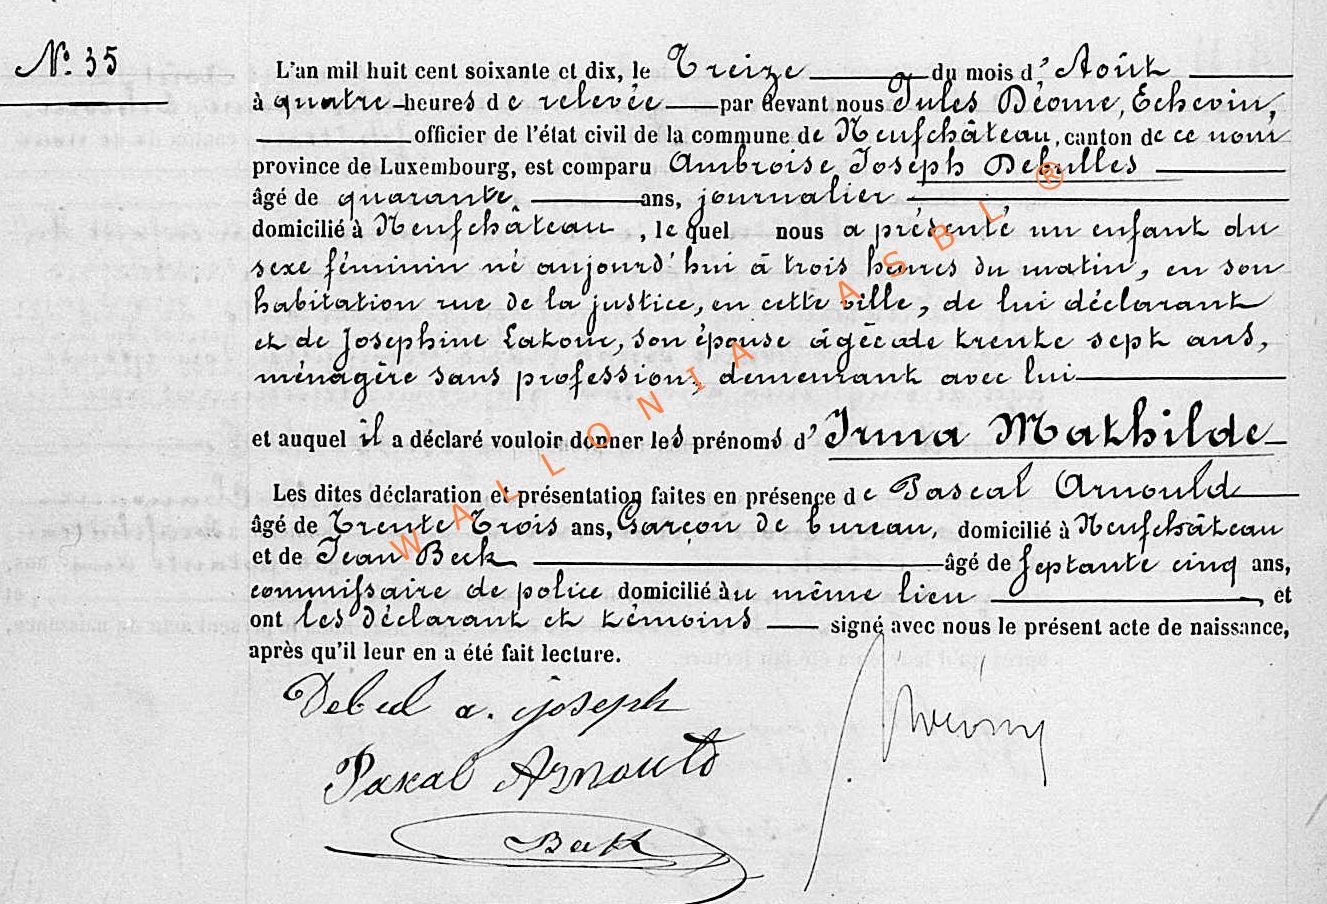 N°. 35
L'an mil huit cent soixante et dix, le Treize du mois d'Août
à quatre heures de relevée par devant nous Jules Déome, Echevin,
officier de l'état civil de la commune de Neufchâteau, canton de ce nom
province de Luxembourg, est comparu Ambroise Joseph Debulles
âgé de quarante ans, journalier
domicilié à Neufchâteau, lequel nous a présenté un enfant du
sexe féminin né aujourd'hui à trois heures du matin, en son
habitation rue de la justice, en cette ville, de lui déclarant
et de Josephine Latour, son épouse âgée de trente sept ans,
ménagère sans profession, demeurant avec lui
et auquel il a déclaré vouloir donner les prénoms d'Irma Mathilde
Les dites déclaration et présentation faites en présence de Pascal Arnould
âgé de Trente Trois ans, Garçon de bureau, domicilié à Neufchâteau
et de Jean Beck âgé de Septante cinq ans,
commissaire de police domicilié au même lieu, et
ont les déclarant et témoins signé avec nous le présent acte de naissance,
après qu'il leur en a été fait lecture.
Debul a. joseph
Paxal Arnould
Beck
WALLONIA ASBL ®